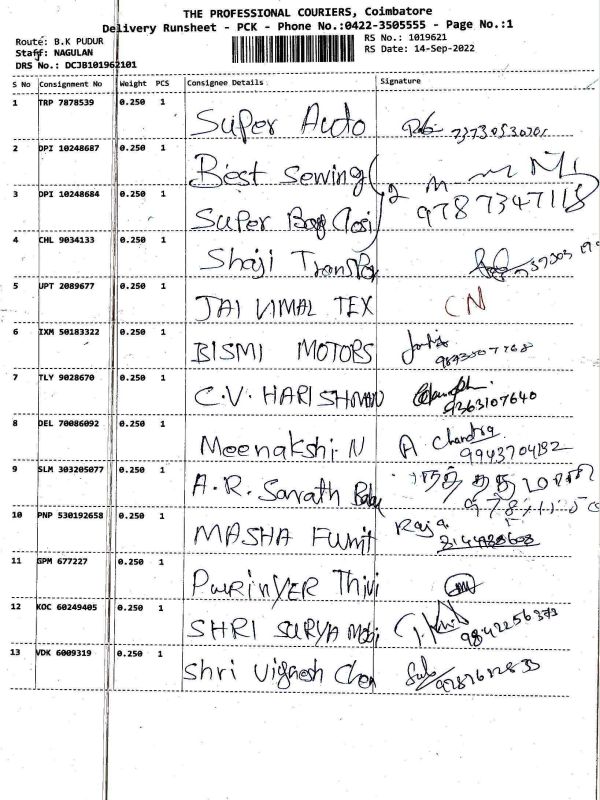 THE PROFESSIONAL COURIERS, Coimbatore
Delivery Runsheet - PCK - Phone No.:0422-3505555 - Page No.:1
Route: B.K PUDUR
RS No.: 1019621
Staff: NAGULAN
RS Date: 14-Sep-2022
DRS No.: DCJB101962101
S No Consignment No Weight PCS Consignee Details Signature
1 TRP 7878539 0.250 1 Super Auto
2 DPI 10248687 0.250 1 Best Sewing
3 DPI 10248684 0.250 1 Super Bag Closi 9787347118
4 CHL 9034133 0.250 1 Shaji Transpor
5 UPT 2089677 0.250 1 JAI VIMAL TEX CN
6 IXM 50183322 0.250 1 BISMI MOTORS
7 TLY 9028670 0.250 1 C.V. HARISHMAN 9363107640
8 DEL 70086092 0.250 1 Meenakshi.N A. Chandra 9943704192
9 SLM 303205077 0.250 1 A.R. Sarath Babu
10 PNP 530192658 0.250 1 MASHA Furnit Raja
11 GPM 677227 0.250 1 Thivi
12 KOC 60249405 0.250 1 SHRI SURYA Mobi 9842256373
13 VDK 6009319 0.250 1 Shri Vignesh Chen